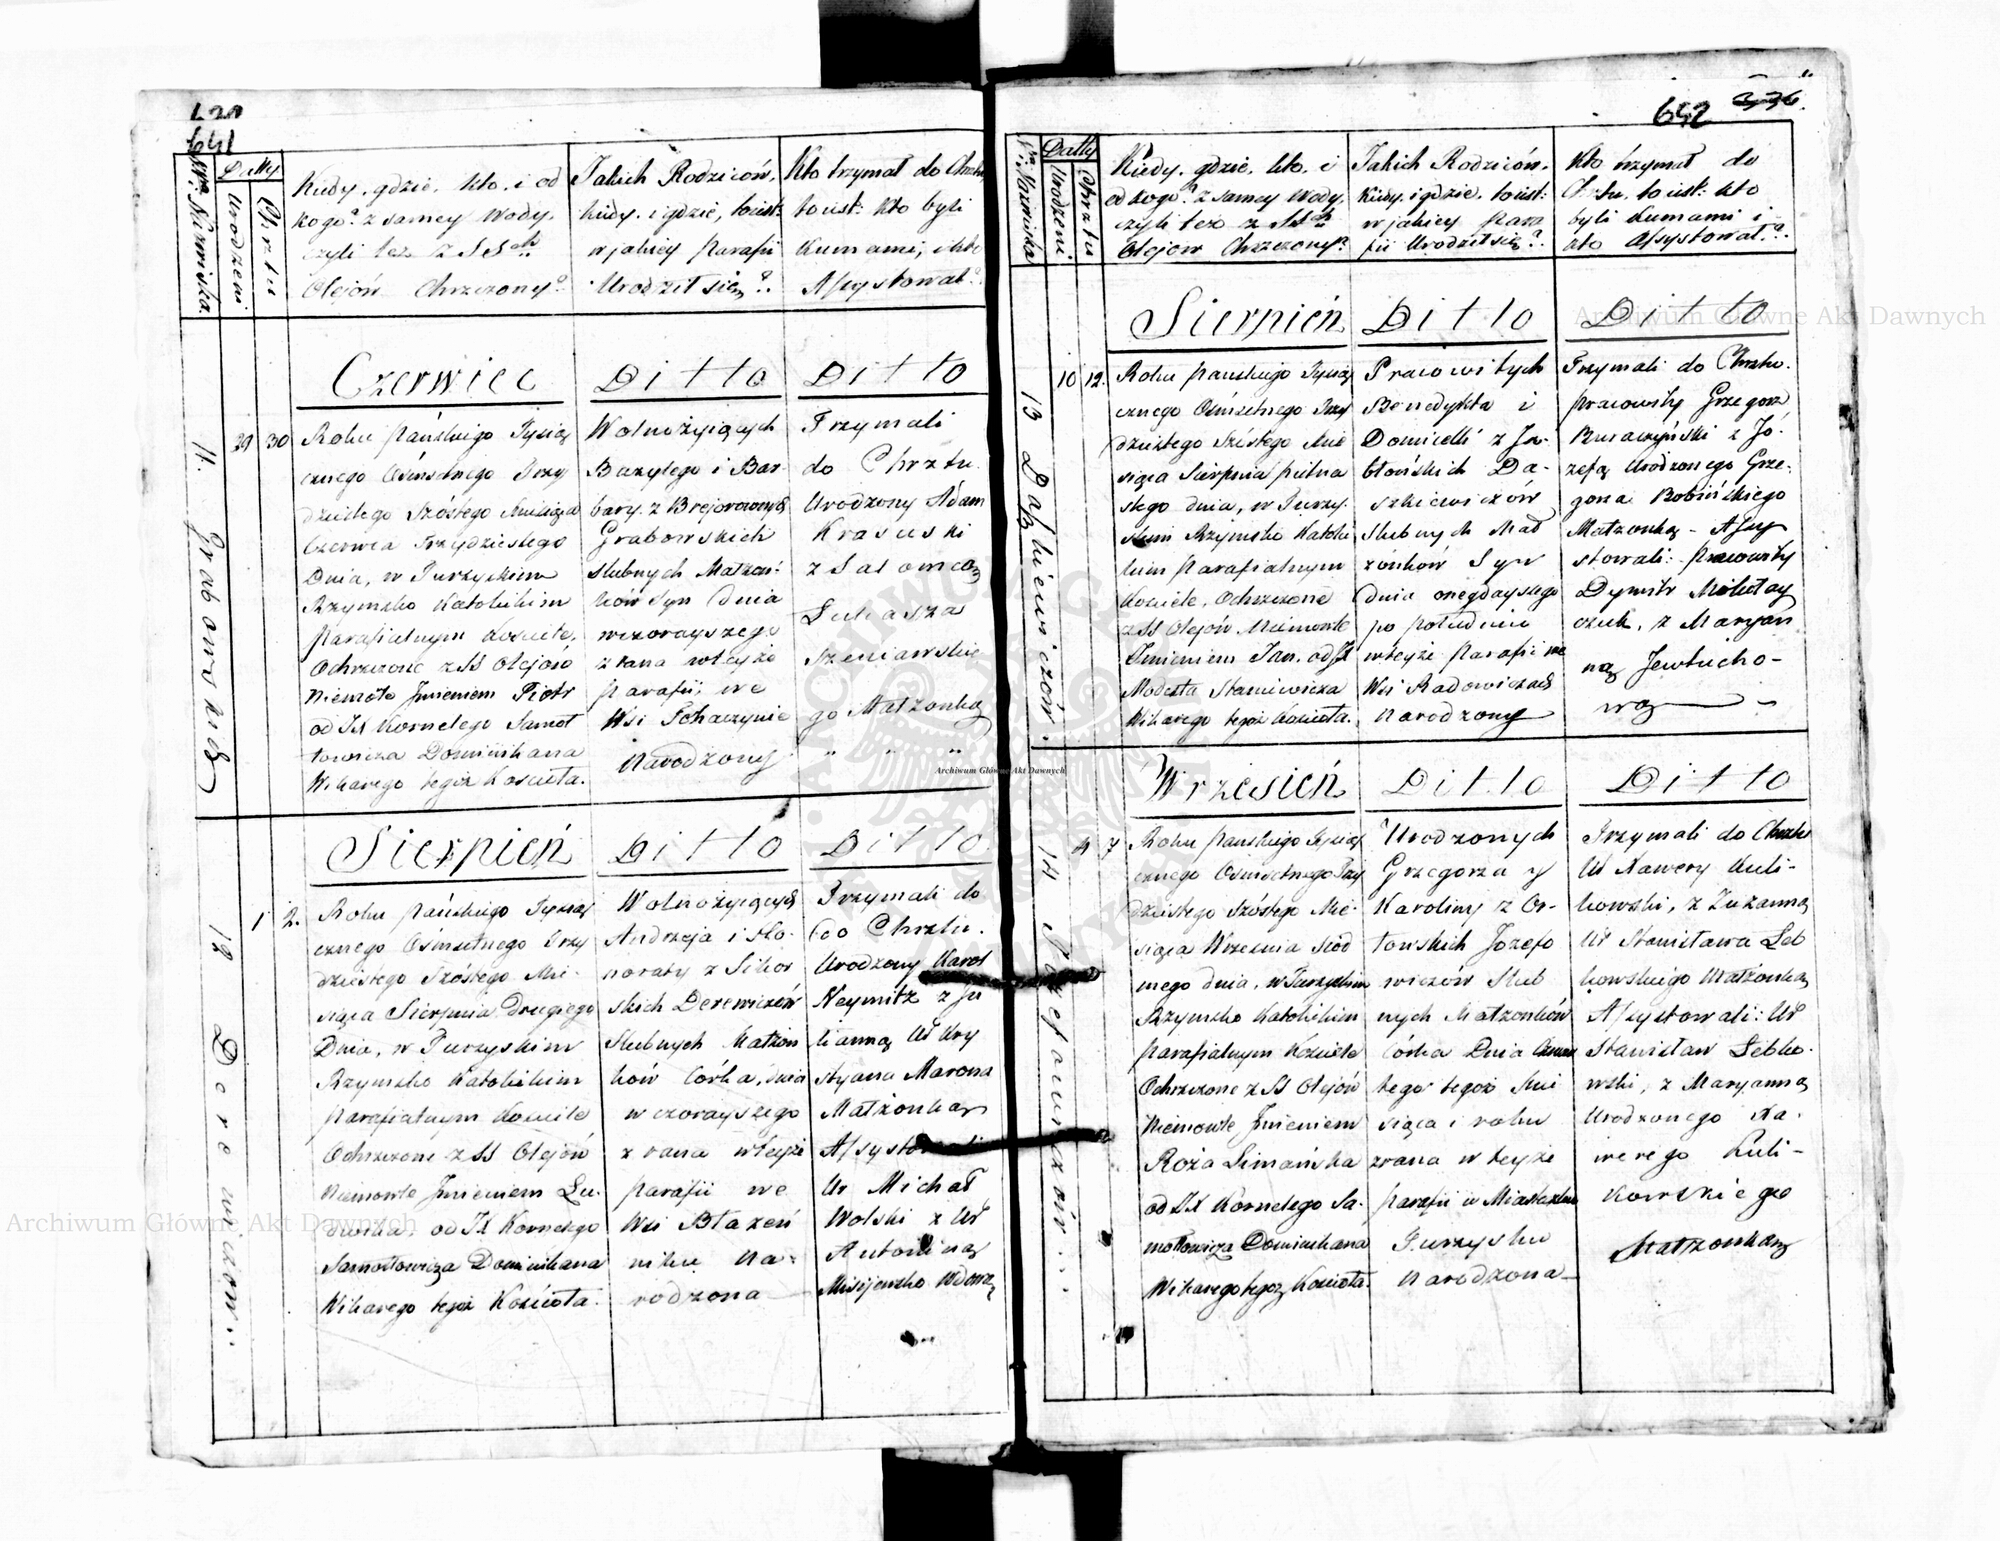 641
Nro. i Nazwiska.
Datty
Urodzeni
Chrztu
Kiedy, gdzie, kto, i od
kogo? z samey Wody,
czyli też z SSch
Olejów Chrzczony?
Jakich Rodziców,
kiedy, i gdzie, to iest:
w jakiey Parafii
Urodził się?
Kto trzymał do Chrztu
to iest: kto byli
Kumami, i kto
Assystował?
Czerwiec
Ditto
Ditto
11. Grabowskich
29
30
Roku Pańskiego Tysiąc
cznego Ośmsetnego Trzy
dziestego Szóstego Miesiąca
Czerwca Trzydziestego
Dnia, w Turzyskim
Rzymsko Katolickim
Parafialnym Kościele,
Ochrzczone z SS Olejów
Niemowle Jmieniem Piotr
od JX Kornelego Samoł
towicza Dominikana
Wikarego tegoż Kościoła.
Wolnożyiących
Bazylego i Bar-
bary z Grabowskich
ślubnych Małżon-
ków Syn dnia
wczorayszego
z rana w teyże
Parafii, we
Wsi
Narodzony
Trzymali
do Chrztu
Urodzony Adam
Krasuski
z Salomeą
Łukasza
go Małżonką
" " "
Sierpień
Ditto
Ditto
12 Derewiczow
1
2.
Roku Pańskiego Tysiąc
cznego Ośmsetnego Trzy
dziestego Szóstego Mie-
siąca Sierpnia Drugiego
Dnia, w Turzyskim
Rzymsko Katolickim
Parafialnym Kościele
Ochrzczone z SS Olejów
Niemowle Jmieniem Lu-
dwika, od JX Kornelego
Samołtowicza Dominikana
Wikarego tegoż Kościoła.
Wolnożyiących
Andrzeja i Ho-
noraty z Sikor
skich Derewiczów
Ślubnych Małżon
ków Córka, dnia
wczorayszego
z rana w teyże
parafii we
Wsi Błażen
niku Na-
rodzona
Trzymali do
do Chrztu.
Urodzony Karol
Neymitz z Ju
lianną Ur Kry
styana Marona
Małżonką
Assystowali
Ur Michał
Wolski z Ur
Antoniną
Wdową
642
336.
Nro. i Nazwiska
Datty
Urodzeni.
Chrztu
Kiedy, gdzie, kto, i
od kogo? z samey Wody,
czyli też z SSch
Olejów Chrzczony?
Jakich Rodziców,
Kiedy, i gdzie, to iest:
w jakiey Para
fii Urodził się?
Kto trzymał do
Chrztu, to iest: kto
byli Kumami i
kto Assystował?
Sierpień
Ditto
Ditto
13 Daszkiewiczów.
10
12.
Roku Pańskiego Tysiąc
cznego Ośmsetnego Trzy
dziestego Szóstego Mie
siąca Sierpnia
stego dnia, w Turzy-
skim Rzymsko Katolic
kim Parafialnym
Kościele, Ochrzczone
z SS Olejów Niemowle
Jmieniem Jan, od JX
Modesta Staniewicza
Wikarego tegoż Kościoła.
Pracowitych
Benedykta i
Domicelli z Ja-
błońskich Da-
szkiewiczów
Ślubnych Mał
żonków Syn
dnia onegdayszego
po południu
w teyże Parafii we
Wsi Radowiczach
Narodzony
Trzymali do Chrztu.
Pracowity Grzegorz
Buraczyński z Jó-
zefą Urodzonego Grze-
gorza Robińskiego
Małżonką - Assy
stowali: Pracowity
Dymitr Mikołay
czuk, z Maryan
ną Jewtucho-
wą
Wrzesień
Ditto
Ditto
14 Józefowiczów
4
7
Roku Pańskiego Tysiąc
cznego Ośmsetnego Trzy
dziestego Szóstego Mie-
siąca Września Siód
mego dnia, w Turzyskim
Rzymsko Katolickim
Parafialnym Kościele
Ochrzczone z SS Olejów
Niemowle Jmieniem
Róża
od JX Kornelego Sa-
mołtowicza Dominikana
Wikarego tegoż Kościoła.
Urodzonych
Grzegorza y
Karoliny z Or-
łowskich Józefo
wiczów Ślub
nych Małżonków
Córka Dnia Czwar
tego tegoż Mie
siąca i roku
zrana w teyże
parafii w Miasteczku
Turzysku
Narodzona
Trzymali do Chrztu
Ur Xawery Kuli-
kowski, z Zuzanną
Ur Stanisława Leb
kowskiego Małżonką
Assystowali: Ur
Stanisław Lebko-
wski, z Maryanną
Urodzonego Xa-
werego Kuli-
kowskiego
Małżonką
Archiwum Główne Akt Dawnych
Archiwum Główne Akt Dawnych
Archiwum Główne Akt Dawnych